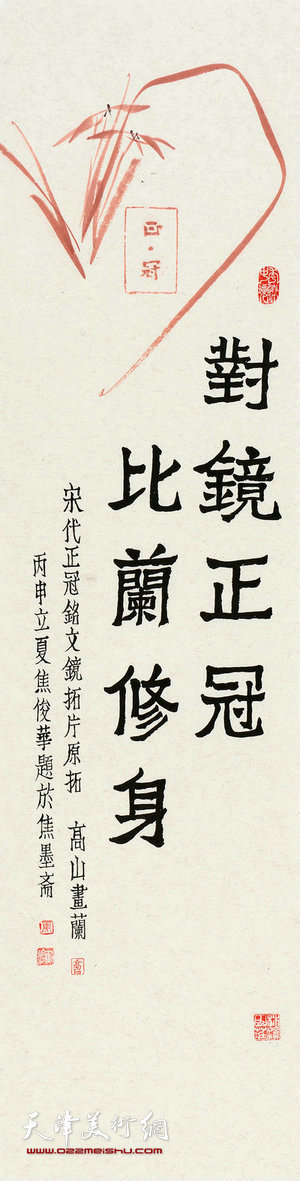 正·冠
對鏡正冠
比蘭修身
宋代正冠銘文鏡拓片原拓 高山畫蘭
丙申立夏焦俊華題於焦墨斋
天津美術網
www.022meishu.com